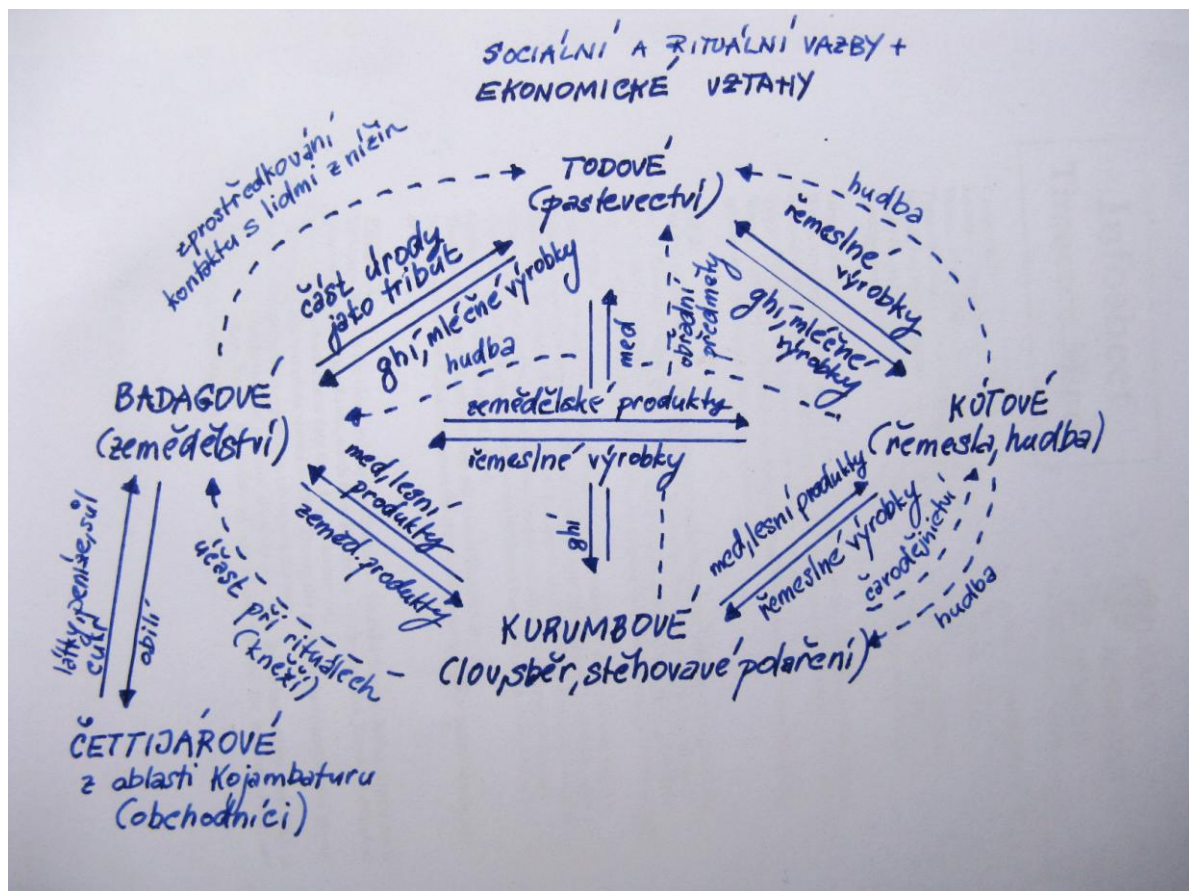 SOCIÁLNÍ A RITUÁLNÍ VAZBY +
EKONOMICKÉ VZTAHY
zprostředkování
kontaktu s lidmi z nížin
TODOVÉ
(pastevectví)
hudba
řemeslné
výrobky
část úrody
jako tribut
ghí, mléčné výrobky
med
obřadní
předměty
ghí, mléčné
výrobky
hudba
BADAGOVÉ
(zemědělství)
zemědělské produkty
řemeslné výrobky
KÓTOVÉ
(řemesla, hudba)
med, lesní
produkty
zeměd. produkty
ghí
med, lesní produkty
řemeslné výrobky
čarodějnictví
hudba
látky, peníze, sůl
cukr
obilí
účast při rituálech
(kněží)
KURUMBOVÉ
(lov, sběr, stěhovavé polaření)
ČETTIJÁROVÉ
z oblasti Kojambaturu
(obchodníci)